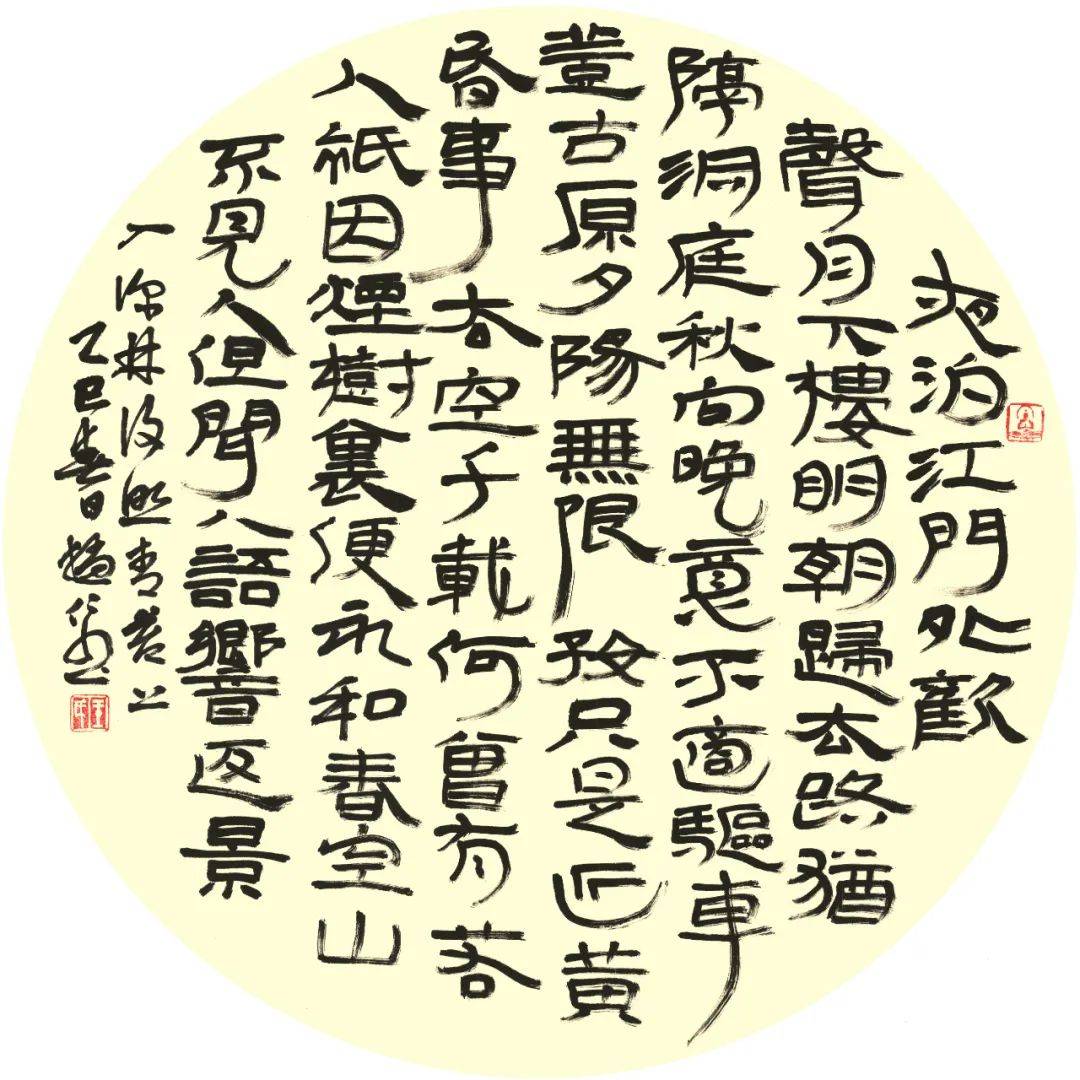 夜泊江門外歡
聲月下樓明朝歸去路猶
隔洞庭秋向晚意不適驅車
登古原夕陽無限好只是近黃
昏事去空千載何曾有若
人祇因煙樹裏便永和春空山
不見人但聞人語響返景
入深林復照青苔上
乙巳春日